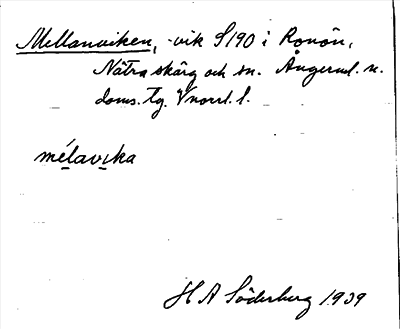 Mellanviken, -vik S190 i Ronön,
Nätra skärg och sn. Ångerml. n.
doms. tg. Vnorrl. l.
mélavıka
H A Söderberg 1939